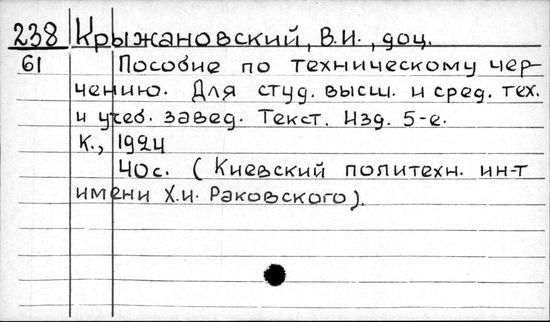 238 Крыжановский, В.И., доц.
61 Пособие по техническому чер-
чению. Для студ. высш. и сред. тех.
и учеб. завед. Текст. Изд. 5-е.
К., 1924
40 с. (Киевский политехн. ин-т
имени Х.И. Раковского).